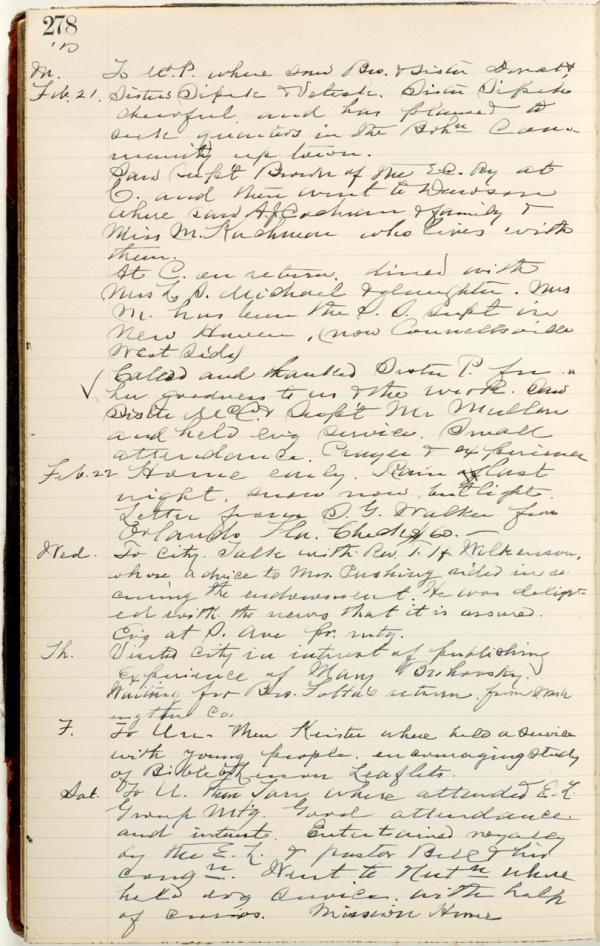 278
'10
M. To W.P. where saw Bro. & Sister
Feb. 21. Sisters &. Sister
cheerful and has planned to
seek quarters in the Bohn Com-
munity up town.
Saw Sup't Brown of the E.C. Ry at
C. and then went to Dawson
where saw A J Cochran & family &
Miss M. Kachman who lives with
them.
At C. on return, dined with
Mrs L. S. Michael & daughter. Mrs
M. has been the S. S. Supt in
New Haven, (now Connellsville
West Side)
✓ Called and thanked Sister P. for
her goodness to us & the work. Saw
Sister McC. & Sup't Mr Mullen
and held evg service. Small
attendance. Prayer & experience
Feb. 22 Home early. Rain last
night, snow now, but light.
Letter from S. G. Walker from
Orlando Fla. Check $60.—
Wed. To city. Talk with Rev. T. H. Wilkinson,
whose advice to Mrs. Cushing aided in se-
curing the endowment. He was delight-
ed with the news that it is assured.
Evg at S. Ave pr. mtg.
Th. Visited city in interest of publishing
Experience of Mary
Waiting for Bro. return from Wash
ington Co.
F. To Un- then Keister where held a service
with young people, encouraging study
of Bible by Leaflets.
Sat. To U. then Tarr, where attended E. L.
Group Mtg. Good attendance
and interest. Entertained royally
by the E. L. & pastor Bell & his
congn. Went to Hutn where
held evg service with help
of. Mission Home